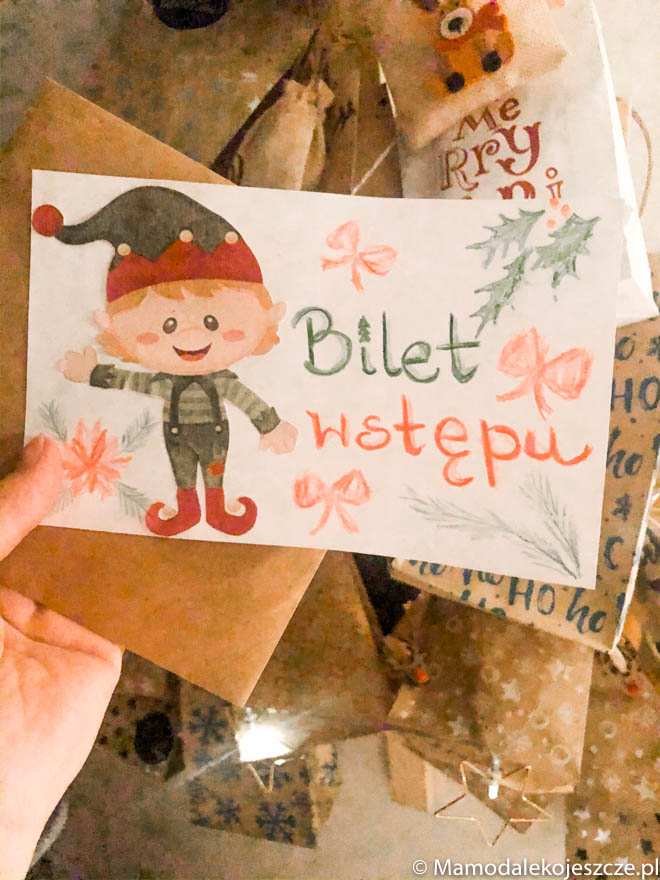 Me
RRy
Bilet
wstępu
HO
ho
ho HO ho
© Mamodalekojeszcze.pl